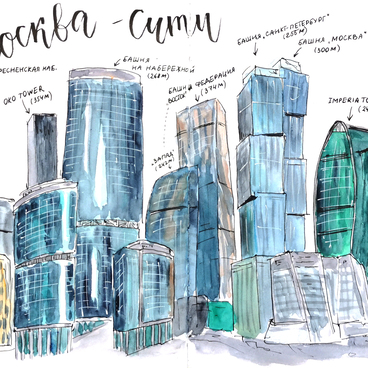 осква - Сити
ресненская наб.
ОКО TOWER
(354м)
БАШНЯ
НА НАБЕРЕЖНОЙ
(268м)
БАШНЯ ФЕДЕРАЦИЯ
"ВОСТОК"
(374м)
"ЗАПАД"
(242м)
БАШНЯ "САНКТ-ПЕТЕРБУРГ"
(255м)
БАШНЯ "МОСКВА"
(300м)
IMPERIA TO
(2